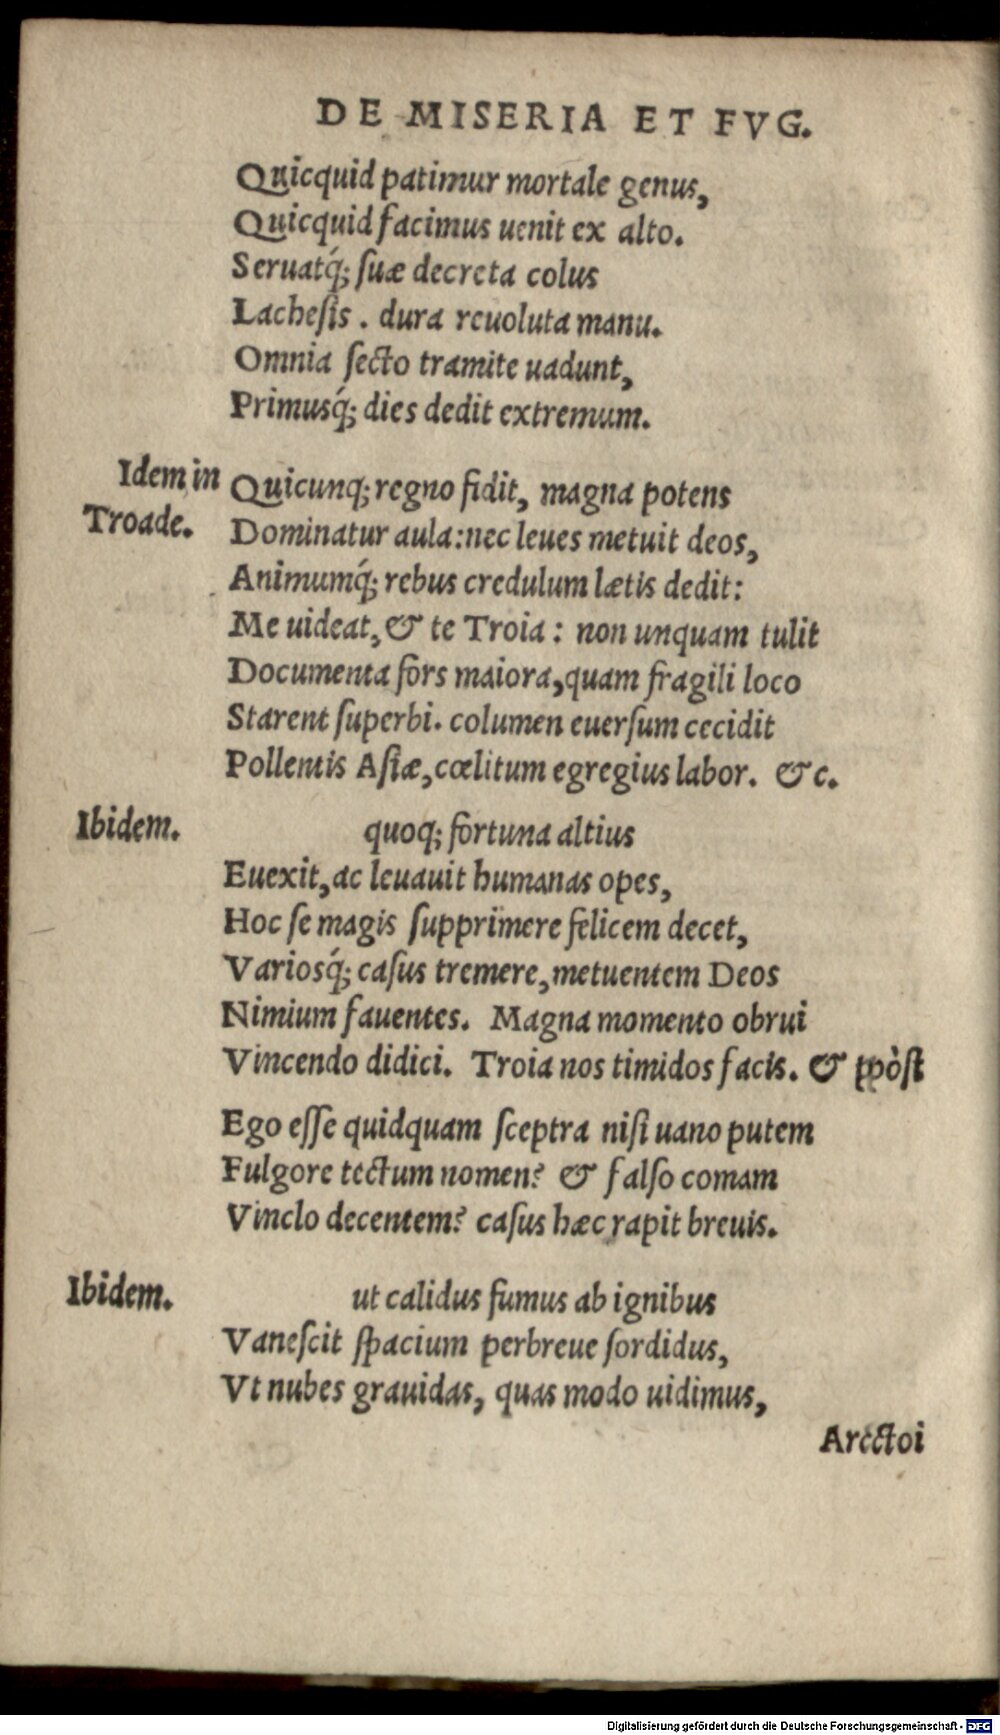 DE MISERIA ET FVG.
Quicquid patimur mortale genus,
Quicquid facimus uenit ex alto.
Seruatq́; suæ decreta colus
Lachesis . dura reuoluta manu.
Omnia secto tramite uadunt,
Primusq́; dies dedit extremum.
Idem in Troade.
Quicunq; regno fidit, magna potens
Dominatur aula: nec leues metuit deos,
Animumq́; rebus credulum lætis dedit:
Me uideat, & te Troia : non unquam tulit
Documenta fors maiora, quam fragili loco
Starent superbi. columen euersum cecidit
Pollentis Asiæ, cœlitum egregius labor. &c.
Ibidem.
quoq; fortuna altius
Euexit, ac leuauit humanas opes,
Hoc se magis supprimere felicem decet,
Variosq́; casus tremere, metuentem Deos
Nimium fauentes. Magna momento obrui
Vincendo didici. Troia nos timidos facis. & pòst
Ego esse quidquam sceptra nisi uano putem
Fulgore tectum nomen? & falso comam
Vinclo decentem? casus hæc rapit breuis.
Ibidem.
ut calidus fumus ab ignibus
Vanescit spacium perbreue sordidus,
Vt nubes grauidas, quas modo uidimus,
Arectoi
Digitalisierung gefördert durch die Deutsche Forschungsgemeinschaft - DFG